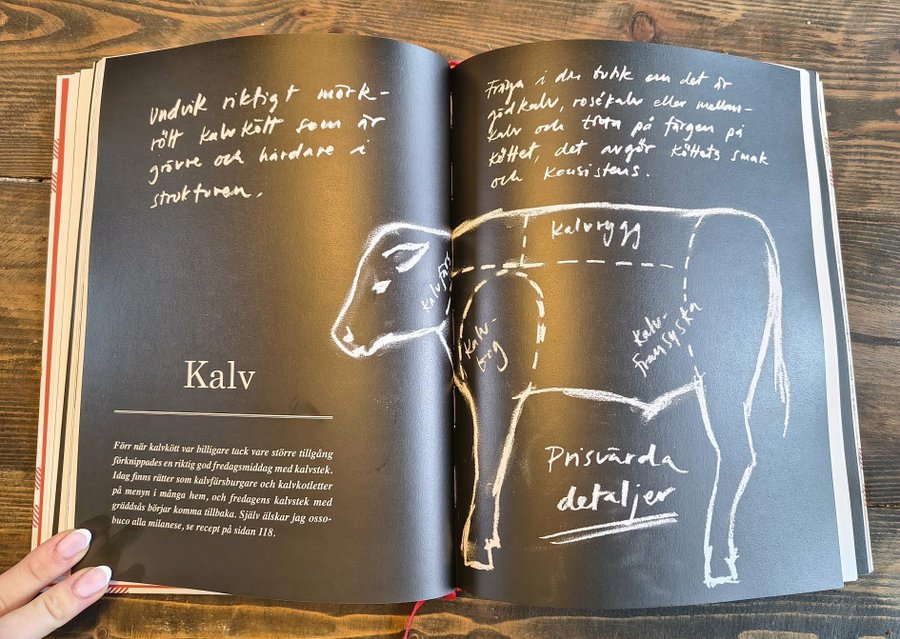 Undvik riktigt mörk-
rött kalvkött som är
grövre och hårdare i
strukturen.
Kalv
Förr när kalvkött var billigare tack vare större tillgång
förknippades en riktig god fredagsmiddag med kalvstek.
Idag finns rätter som kalvfärsburgare och kalvkotletter
på menyn i många hem, och fredagens kalvstek med
gräddsås börjar komma tillbaka. Själv älskar jag osso-
buco alla milanese, se recept på sidan 118.
Fråga i din butik om det är
gödkalv, rosékalv eller mellan-
kalv och titta på färgen på
köttet, det avgör köttets smak
och konsistens.
Kalvrygg
Kalvfärs
Kalv-
bog
Kalv-
fransyska
Prisvärda
detaljer